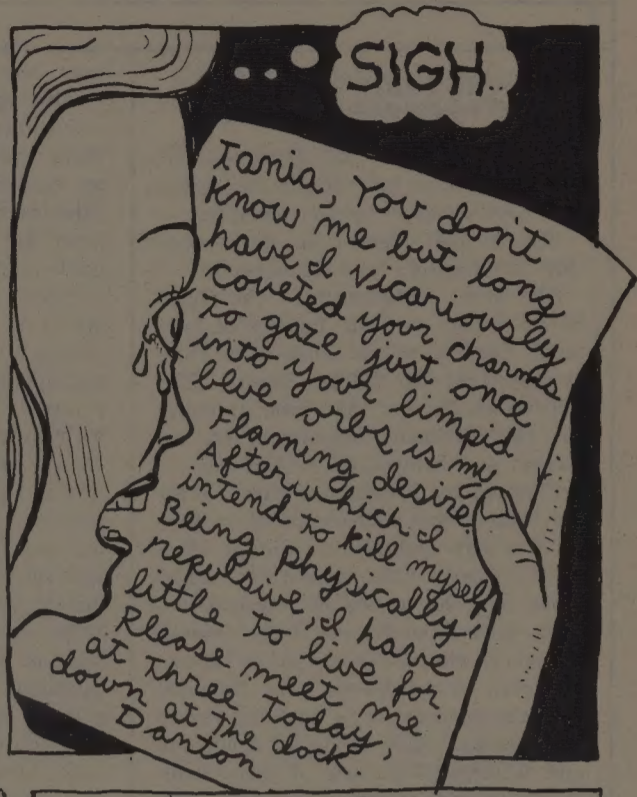 SIGH..
Tania, You don't
Know me but long
have I vicariously
coveted your charms
To gaze just once
into your limpid
blue orbs is my
Flaming desire.
After which I
intend to kill myself
Being Physically,
repulsive, I have
little to live for.
Please meet me
at three today,
down at the dock.
Danton